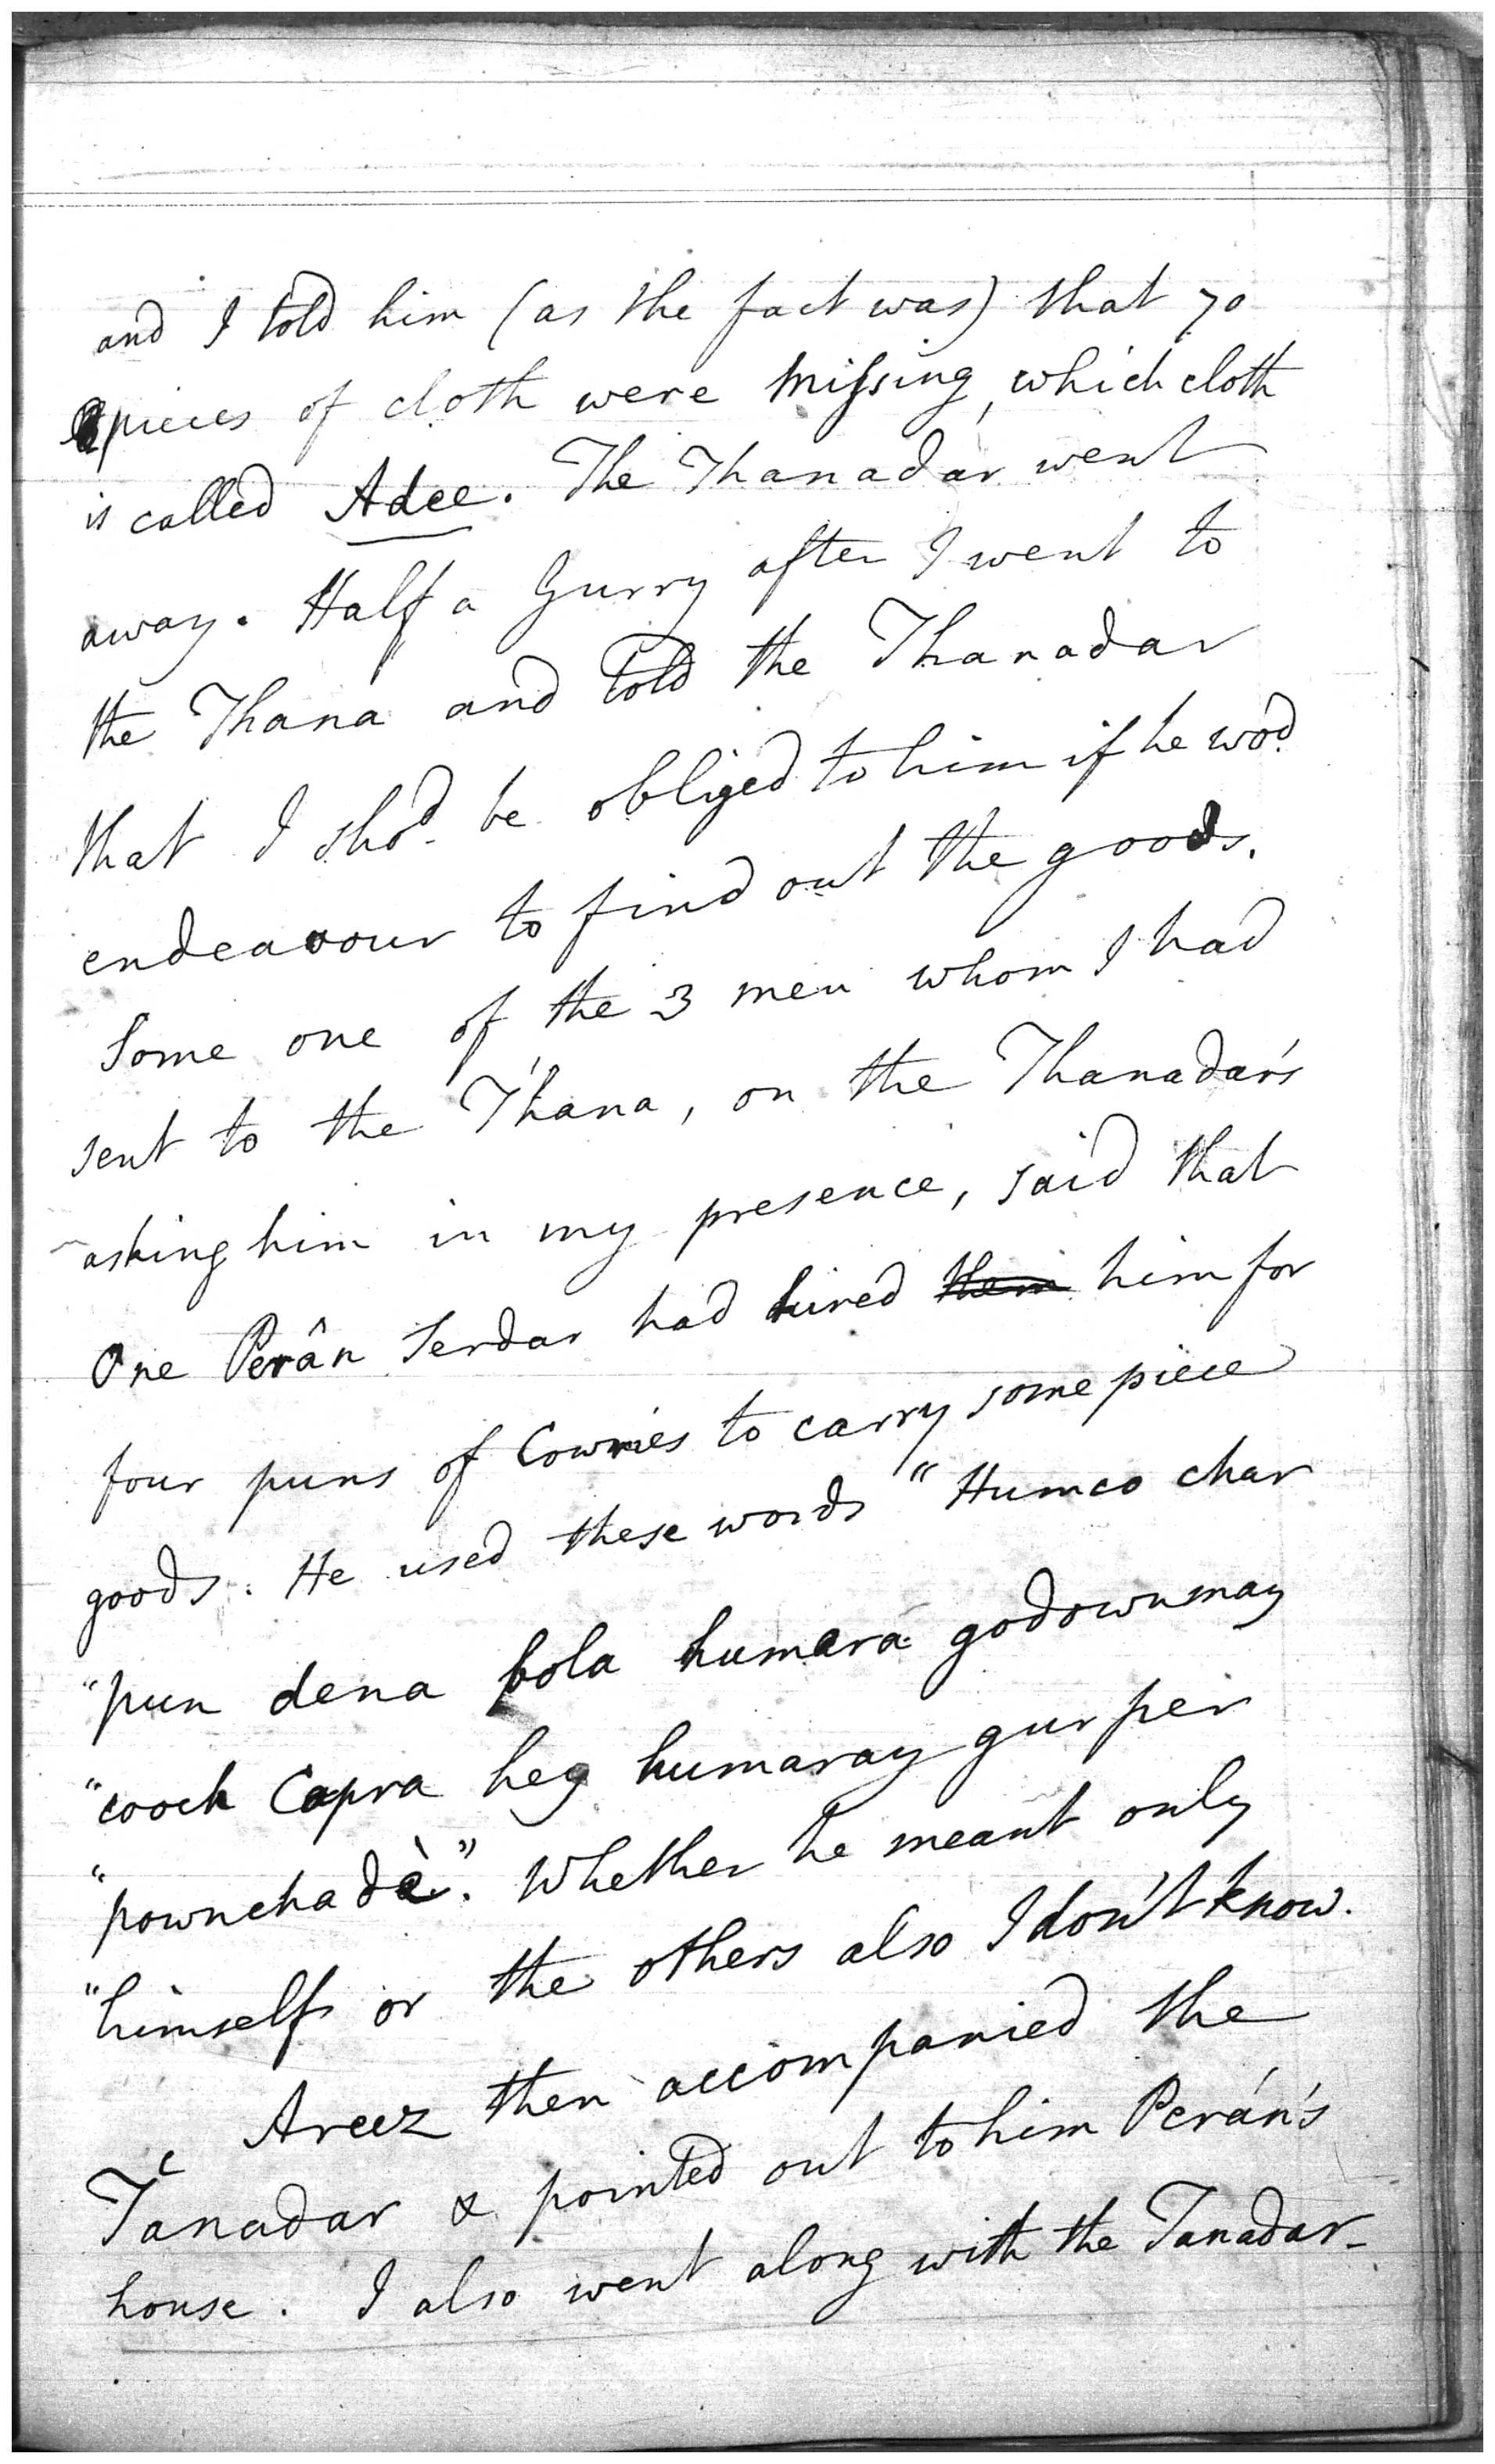 and I told him (as the fact was) that 70
pieces of cloth were missing, which cloth
is called Adee. The Thanadar went
away. Half a Gurry after I went to
the Thana and told the Thanadar
that I shod. be obliged to him if he wod.
endeavour to find out the goods.
Some one of the 3 men whom I had
sent to the T'hana, on the Thanadar's
asking him in my presence, said that
One Perân Serdar had hired them him for
four puns of Cowries to carry some piece
goods. He used these words "Humco char
"pun dena bola humara godownmay
"cooch Capra hey humaray gur per
"pownchadè". Whether he meant only
"himself or the others also I don't know.
Areez then accompanied the
Tanadar & pointed out to him Perán's
house. I also went along with the Tanadar-